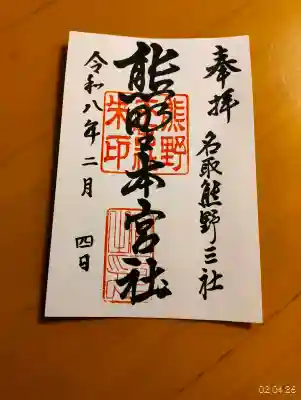 奉拝
名取熊野三社
熊野本宮社
令和八年二月
四日
02.04.26